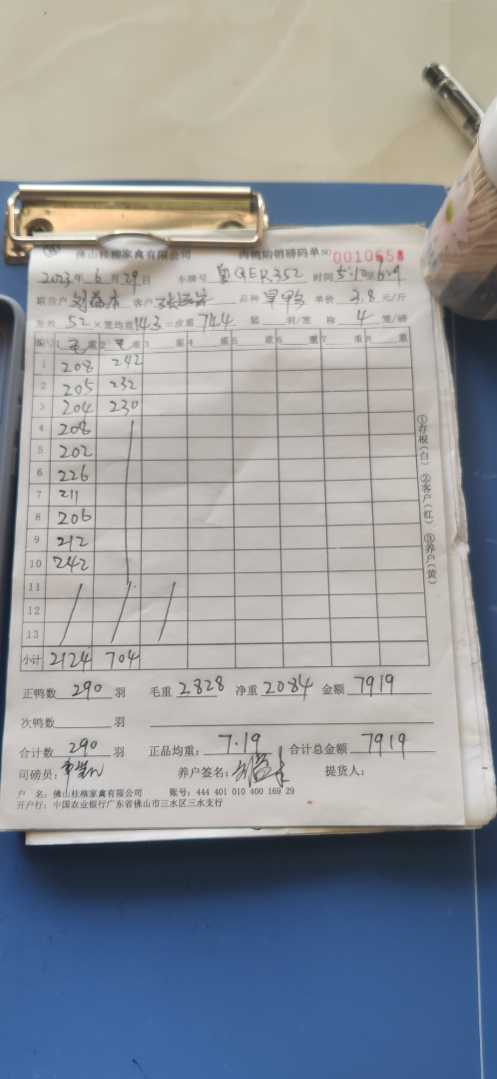 佛山桂柳家禽有限公司 肉鸭购销磅码单 NO 0010658
2023年 6月29日 车牌号 粤QER352 时间 5:10至6:29
客户 品种 单价 3.8元/斤
52×笼均重14.3=皮重744 4笼/磅
编号 1毛重 2毛重 3重 4重 5重 6重 7重 8重
1 208 242
2 205 232
3 204 230
4 208
5 202
6 226
7 211
8 206
9 212
10 242
11
12
13
小计 2124 704
①存根(白) ②客户(红) ③养户(黄)
正鸭数 290 羽 毛重 2828 净重 2084 金额 7919
次鸭数 羽
合计数 290 羽 正品均重: 7.19 合计总金额 7919
司磅员: 养户签名: 提货人:
户 名:佛山桂柳家禽有限公司 账号:444 401 010 400 169 29
开户行:中国农业银行广东省佛山市三水区三水支行